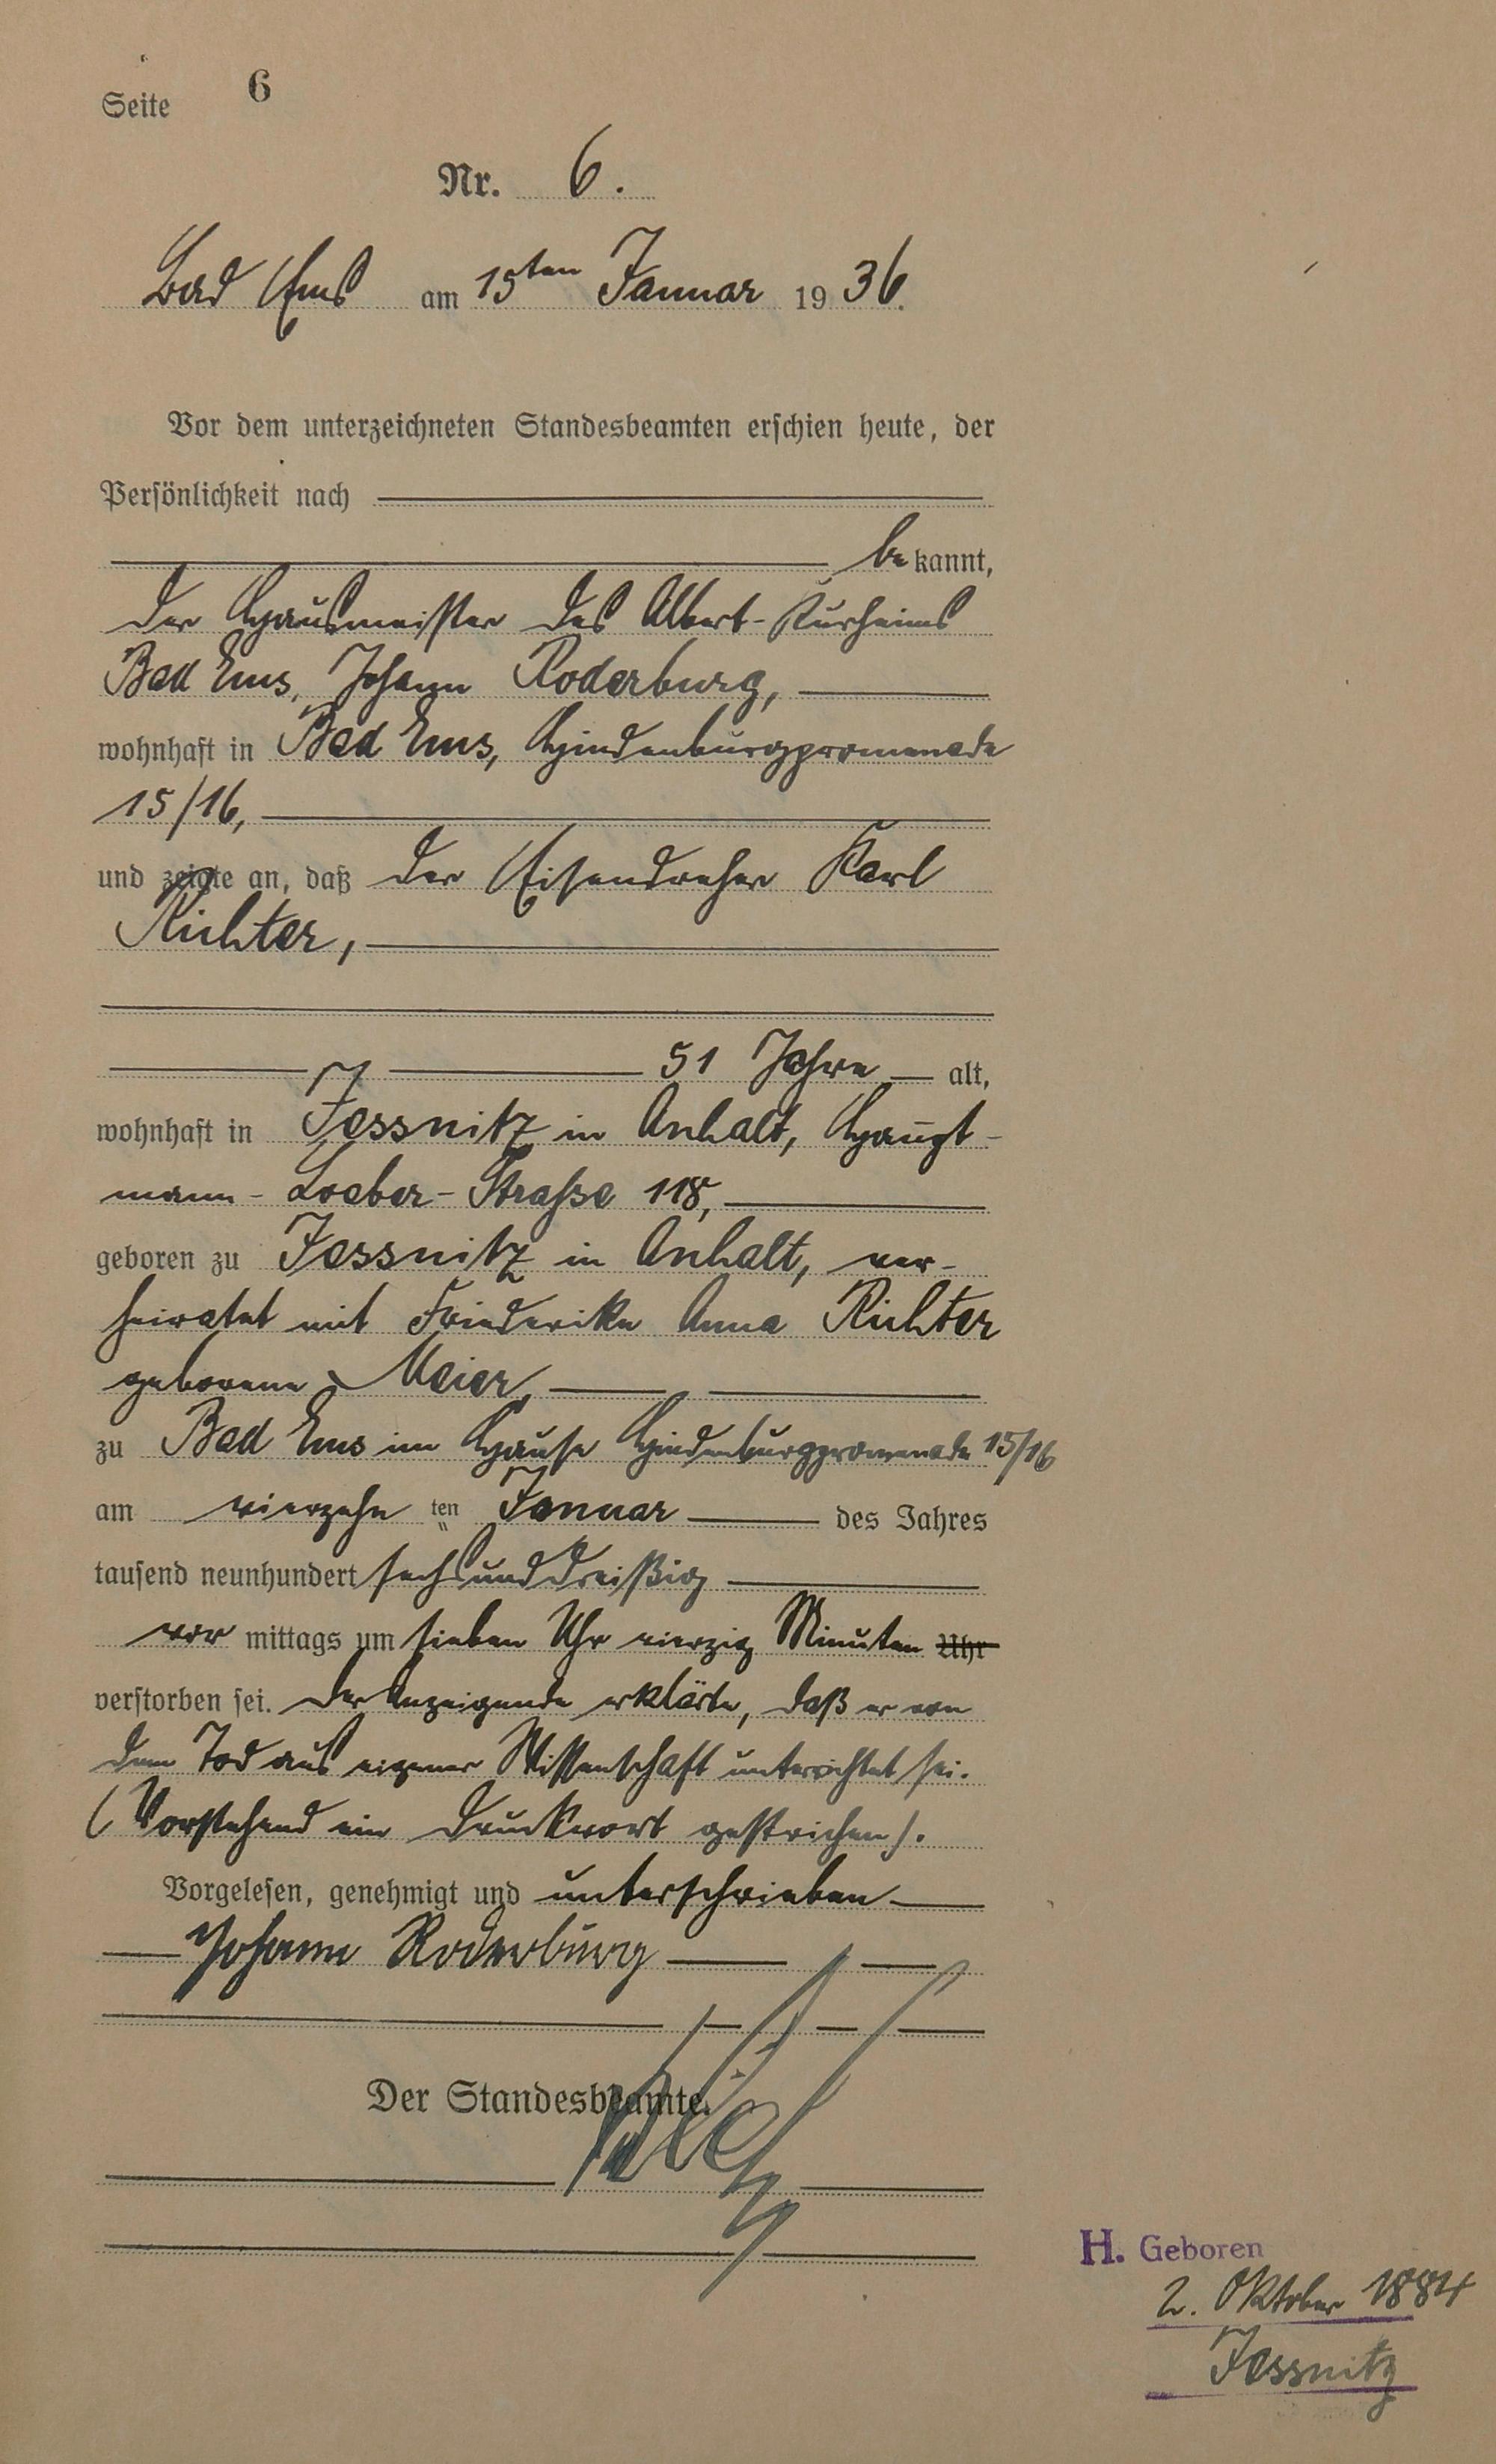 Seite 6
Nr. 6.
Bad Ems am 15ten Januar 1936.
Vor dem unterzeichneten Standesbeamten erschien heute, der
Persönlichkeit nach
bekannt,
der Hausmeister des Albert-Kurheims
Bad Ems, Johann Roderburg,
wohnhaft in Bad Ems, Hindenburgpromenade
15/16,
und zeigte an, daß der Eisendreher Karl
Richter,
51 Jahre alt,
wohnhaft in Jessnitz in Anhalt, Haupt-
mann-Loeber-Straße 118,
geboren zu Jessnitz in Anhalt, ver-
heiratet mit Friederike Anna Richter
geborene Meier,
zu Bad Ems im Hause Hindenburgpromenade 15/16
am vierzehn ten Januar des Jahres
tausend neunhundert sechsunddreißig
vor mittags um sieben Uhr vierzig Minuten Uhr
verstorben sei. Der Anzeigende erklärte, daß er von
dem Tod aus eigener Wissenschaft unterrichtet sei.
(Vorstehend ein Druckwort gestrichen).
Vorgelesen, genehmigt und unterschrieben
Johann Roderburg
Der Standesbeamte.
H. Geboren
2. Oktober 1884
Jessnitz